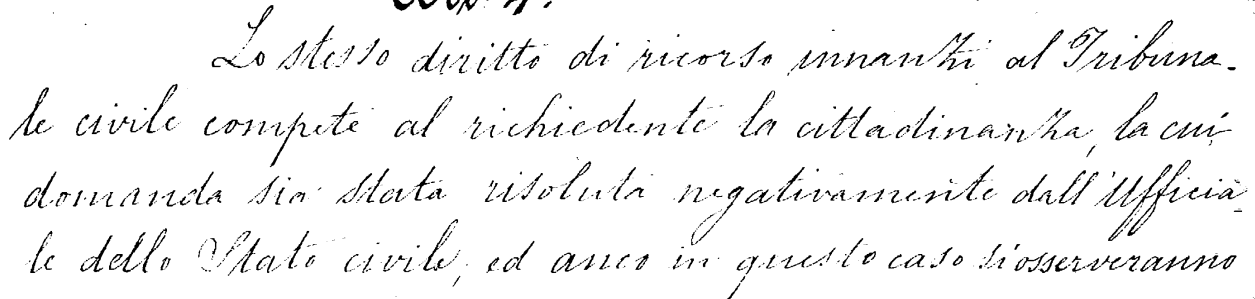 Lo stesso diritto di ricorso innanzi al Tribuna-
le civile compete al richiedente la cittadinanza, la cui
domanda sia stata risoluta negativamente dall'Ufficia-
le dello Stato civile, ed anco in questo caso s'osserveranno